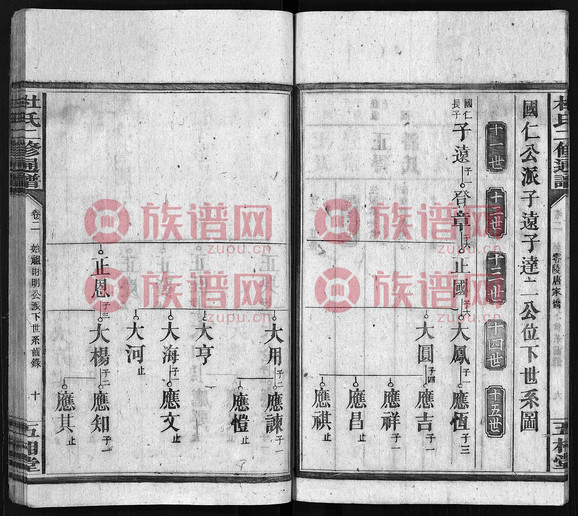 杜氏二修通譜
國仁公派子遠子達二公位下世系圖
十一世
十二世
十三世
十四世
十五世
國仁長子
子遠 子一
登章
正國 子六
大鳳 子一
應恆 子三
大圓 子四
應吉 子一
應祥 子一
應昌 止
應祺 止
五相堂
大用 子二
應諫 子一
應愷 止
大亨 止
大海 子一
應文 止
大河 止
正恩 子三
大楊 子二
應知 子一
應其 止
杜氏二修通譜
卷二
始祖財明公派下世系舊錄
十
五相堂
族谱网
zupu.cn
族谱网
zupu.cn
族谱网
zupu.cn
族谱网
zupu.cn